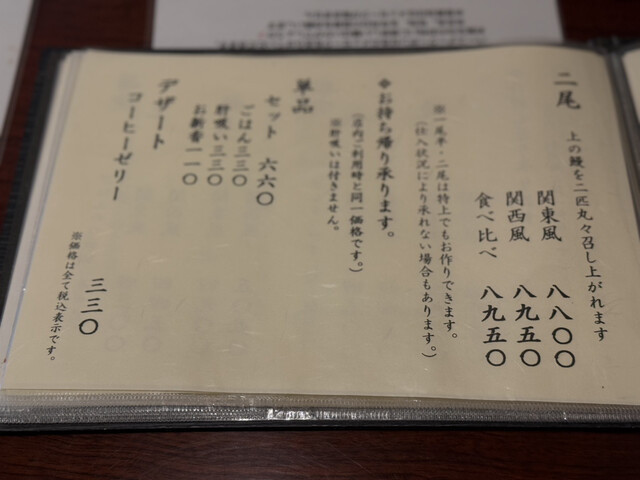 二尾　上の鰻を二匹丸々召し上がれます
関東風　八八〇〇
関西風　八九五〇
食べ比べ　八九五〇
※一尾半・二尾は特上でもお作りできます。
（仕入状況により承れない場合もあります。）
※お持ち帰り承ります。
（店内ご利用時と同一価格です。）
※肝吸いは付きません。
単品
セット　六六〇
ごはん三三〇
肝吸い三三〇
お新香一一〇
デザート
コーヒーゼリー　三三〇
※価格は全て税込表示です。